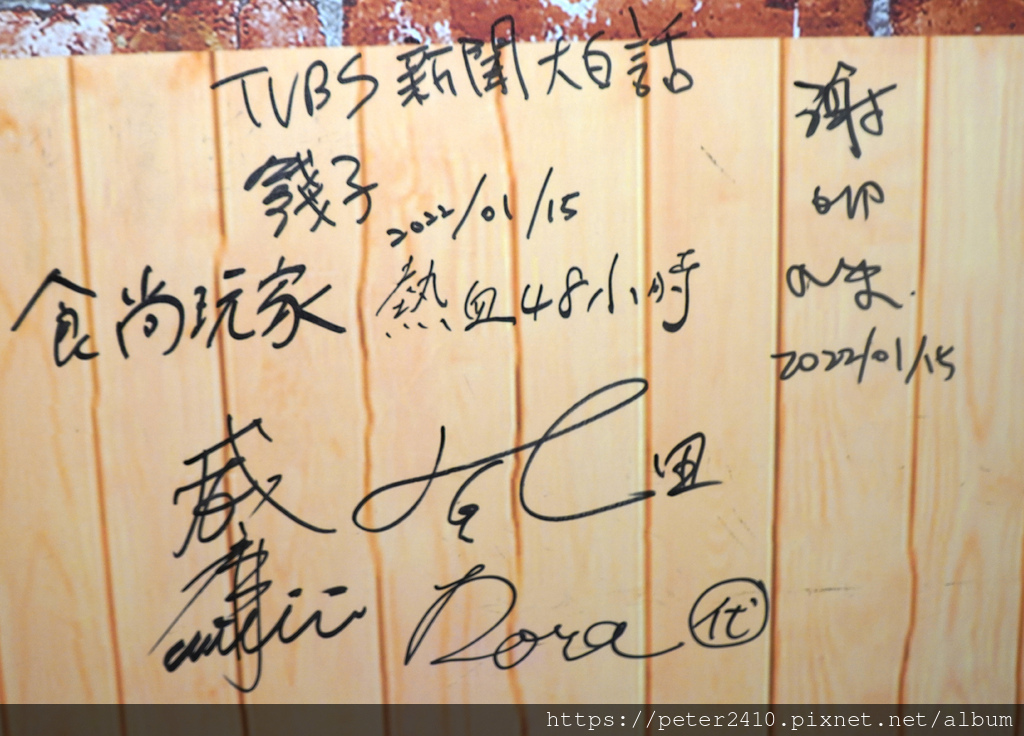 TVBS 新聞大白話
錢子 2022/01/15
食尚玩家 熱血48小時
謝
2022/01/15
威
Dora 代
https://peter2410.pixnet.net/album